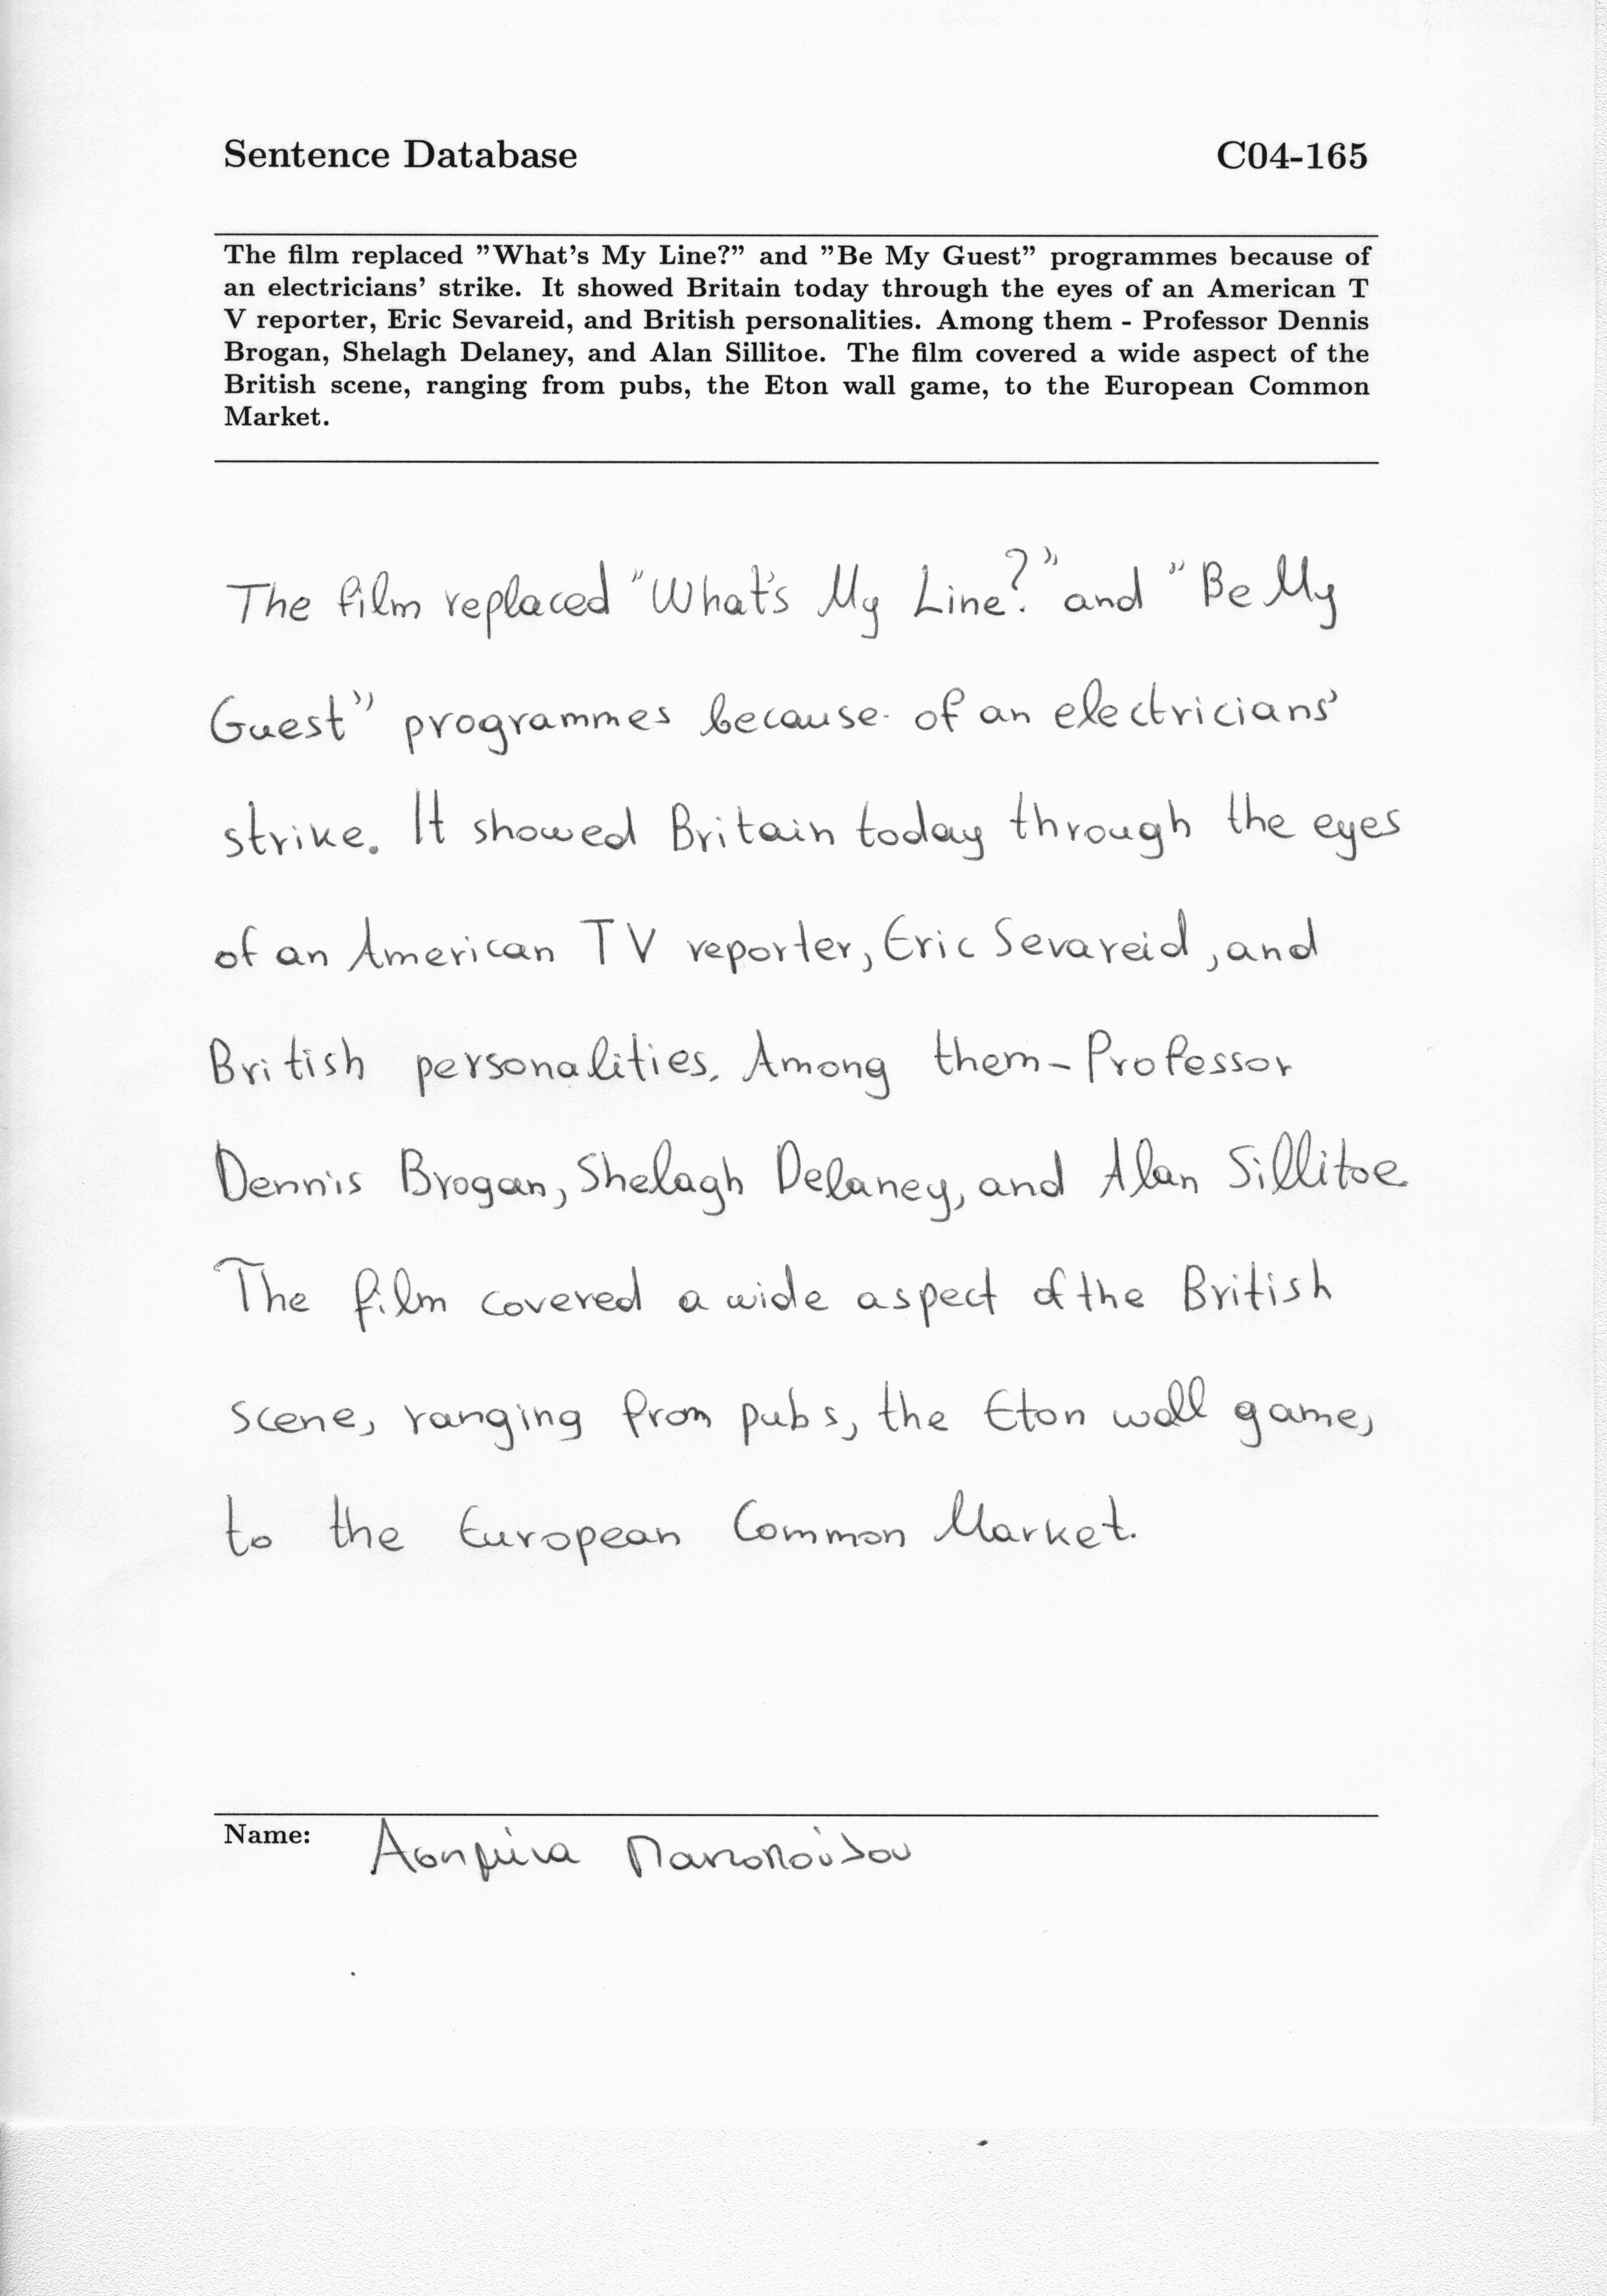 Sentence Database C04-165
The film replaced "What's My Line?" and "Be My Guest" programmes because of
an electricians' strike. It showed Britain today through the eyes of an American T
V reporter, Eric Sevareid, and British personalities. Among them - Professor Dennis
Brogan, Shelagh Delaney, and Alan Sillitoe. The film covered a wide aspect of the
British scene, ranging from pubs, the Eton wall game, to the European Common
Market.
The film replaced "What's My Line?" and "Be My
Guest" programmes because of an electricians'
strike. It showed Britain today through the eyes
of an American TV reporter, Eric Sevareid, and
British personalities. Among them - Professor
Dennis Brogan, Shelagh Delaney, and Alan Sillitoe.
The film covered a wide aspect of the British
scene, ranging from pubs, the Eton wall game,
to the European Common Market.
Name: Ασημίνα